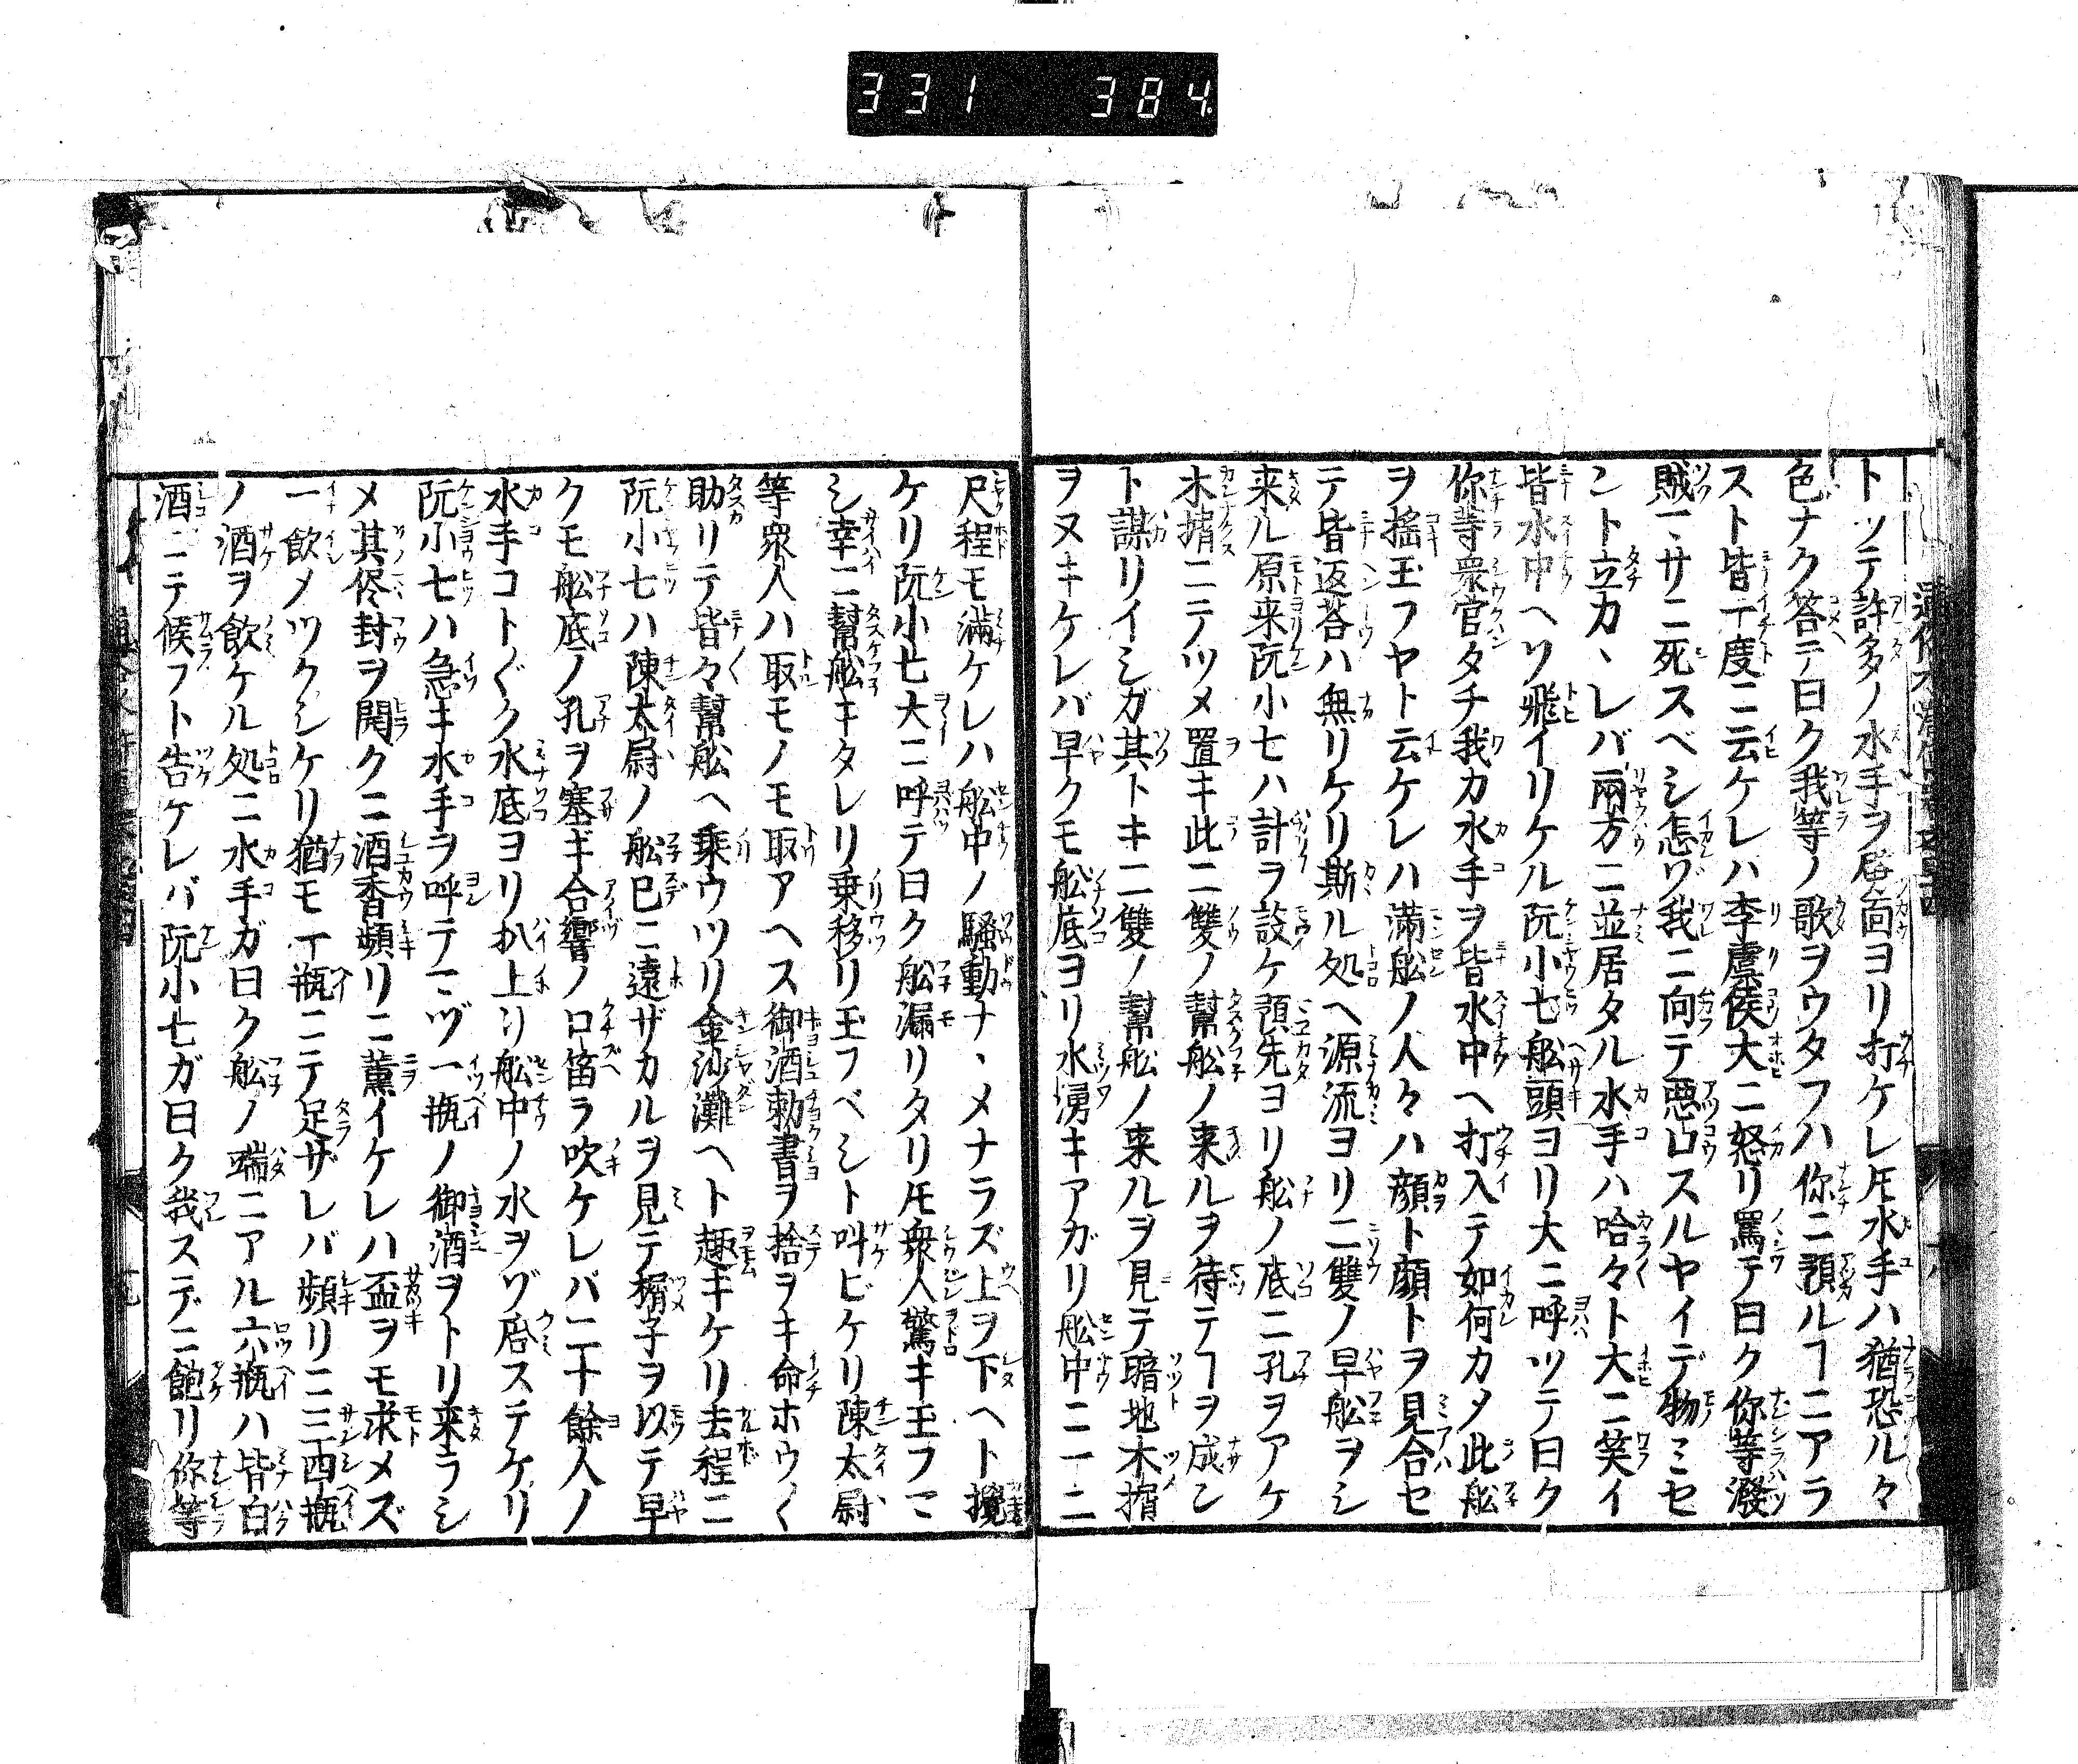 331 384
トツテ許多ノ水手ヲ脊向ヨリ打ケレ𪜈水手ハ猶恐ル々
色ナク答テ曰ク我等ノ歌ヲウタフハ你ニ預ルヿニアラ
スト皆一度ニ云ケレハ李虞侯大ニ怒リ罵テ曰ク你等潑
賊マサニ死スベシ怎ソ我ニ向テ惡口スルヤイデ物ミセ
ント立カヽレバ兩方ニ並居タル水手ハ哈々ト大ニ笑イ
皆水中ヘソ飛イリケル阮小七舩頭ヨリ大ニ呼ツテ曰ク
你等衆官タチ我カ水手ヲ皆水中ヘ打入テ如何カメ此舩
ヲ揺玉フヤト云ケレハ滿舩ノ人々ハ顔ト顔トヲ見合セ
テ皆返荅ハ無リケリ斯ル処ヘ源流ヨリ二雙ノ早舩ヲシ
来ル原来阮小七ハ計ヲ設ケ預先ヨリ舩ノ底ニ孔ヲアケ
木揟ニテツメ置キ此二雙ノ幫舩ノ来ルヲ待テヿヲ成ン
ト謀リイシガ其トキ二雙ノ幫舩ノ来ルヲ見テ暗地木揟
ヲヌキケレバ早クモ舩底ヨリ水湧キアガリ舩中ニ一二
尺程モ滿ケレハ舩中ノ騷動ナヽメナラズ上ヲ下ヘト攪
ケリ阮小七大ニ呼テ曰ク舩漏リタリ𪜈衆人驚キ玉フマ
シ幸ニ幫舩キタレリ乗移リ玉フベシト叫ビケリ陳太尉
等衆人ハ取モノモ取アヘス御酒勅書ヲ捨ヲキ命ホウ〱
助リテ皆々幫舩ヘ乗ウツリ金沙灘ヘト趣キケリ去程ニ
阮小七ハ陳太尉ノ舩已ニ遠ザカルヲ見テ楔子ヲ以テ早
クモ舩底ノ孔ヲ塞ギ合響ノ口笛ラ吹ケレバ二十餘人ノ
水手コト〲ク水底ヨリ扒上リ舩中ノ水ヲヅ𣴎ステケリ
阮小七ハ急キ水手ヲ呼テマヅ一瓶ノ御酒ヲトリ来ラシ
メ其侭封ヲ開クニ酒香頻リニ薰イケレハ盃ヲモ求メズ
一飲メツクシケリ猶モ一瓶ニテ足ザレバ頻リニ三四瓶
ノ酒ヲ飲ケル処ニ水手ガ曰ク舩ノ端ニアル六瓶ハ皆白
酒ニテ候フト告ケレバ阮小七ガ曰ク我スデニ飽リ你等